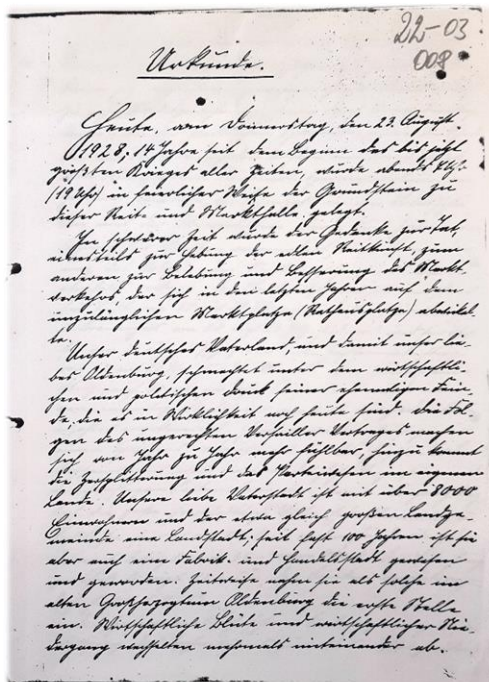 22-03
008
Urkunde.
Heute, am Donnerstag, den 23. August
1928, 14 Jahre seit dem Beginn des bis jetzt
größten Krieges aller Zeiten, wurde abends 7 Uhr
(19 Uhr) in feierlicher Weise der Grundstein zu
dieser Reit- und Markthalle gelegt.
In schwerer Zeit wurde der Gedanke zur Tat,
einesteils zur Hebung der edlen Reitkunst, zum
anderen zur Belebung und Besserung des Markt-
verkehrs, der sich in den letzten Jahren auf dem
unzulänglichen Marktplatze (Rathausplatze) abwickel-
te.
Unser deutsches Vaterland, und damit unser lie-
bes Oldenburg, schmachtet unter dem wirtschaftli-
chen und politischen Druck seiner ehemaligen Fein-
de, die es in Wirklichkeit noch heute sind. Die Fol-
gen des ungerechten Versailler Vertrages machen
sich von Jahr zu Jahr mehr fühlbar, hinzu kommt
die Zersplitterung und das Parteiwesen im eigenen
Lande. Unsere liebe Vaterstadt ist mit über 8000
Einwohnern und der etwa gleich großen Landge-
meinde eine Landstadt, seit fast 100 Jahren ist sie
aber auch eine Fabrik- und Handelsstadt gewesen
und geworden. Zeitweise nahm sie als solche im
alten Großherzogtum Oldenburg die erste Stelle
ein. Wirtschaftliche Blüte und wirtschaftlicher Nie-
dergang wechselten mehrmals miteinander ab.